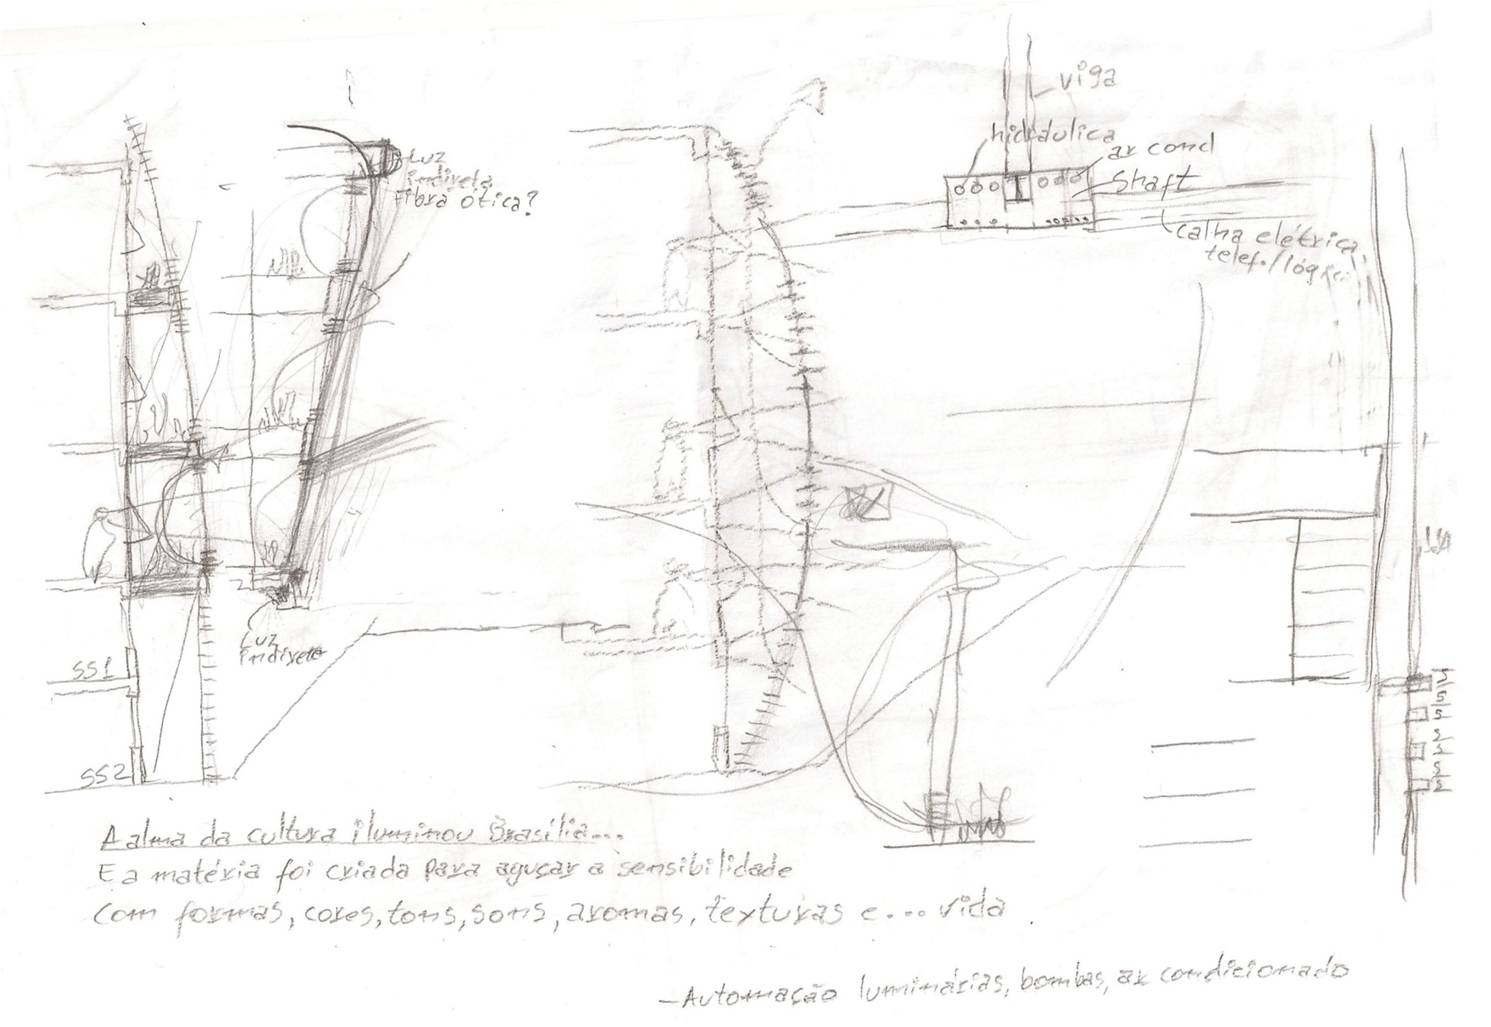 viga
hidráulica
ar cond
shaft
calha elétrica
telef./lógica
Luz
indireta
Fibra ótica?
Luz
indireta
SS1
SS2
A alma da cultura iluminou Brasília...
E a matéria foi criada para aguçar a sensibilidade
com formas, cores, tons, sons, aromas, texturas e... vida.
-Automação luminárias, bombas, ar condicionado